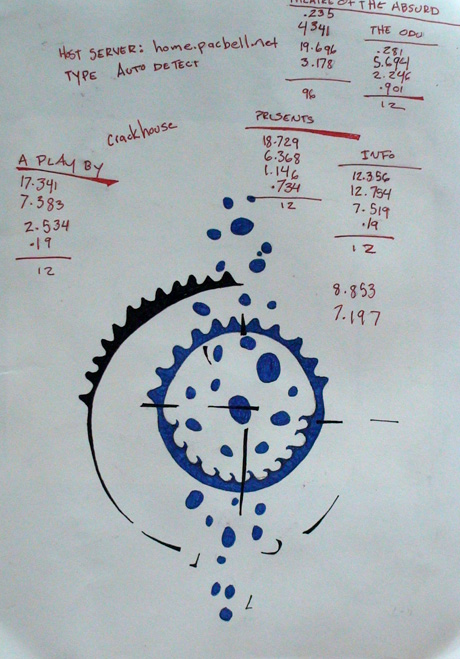 THEATER OF THE ABSURD
.235
4341
19.696
3.178
96
THE ODU
.281
5.694
2.246
.901
12
HOST SERVER: home.pacbell.net
TYPE AUTO DETECT
crackhouse
PRESENTS
18.729
6.368
1.146
.734
12
INFO
12.356
12.754
7.519
.19
12
A PLAY BY
17.341
7.383
2.534
.19
12
8.853
7.197